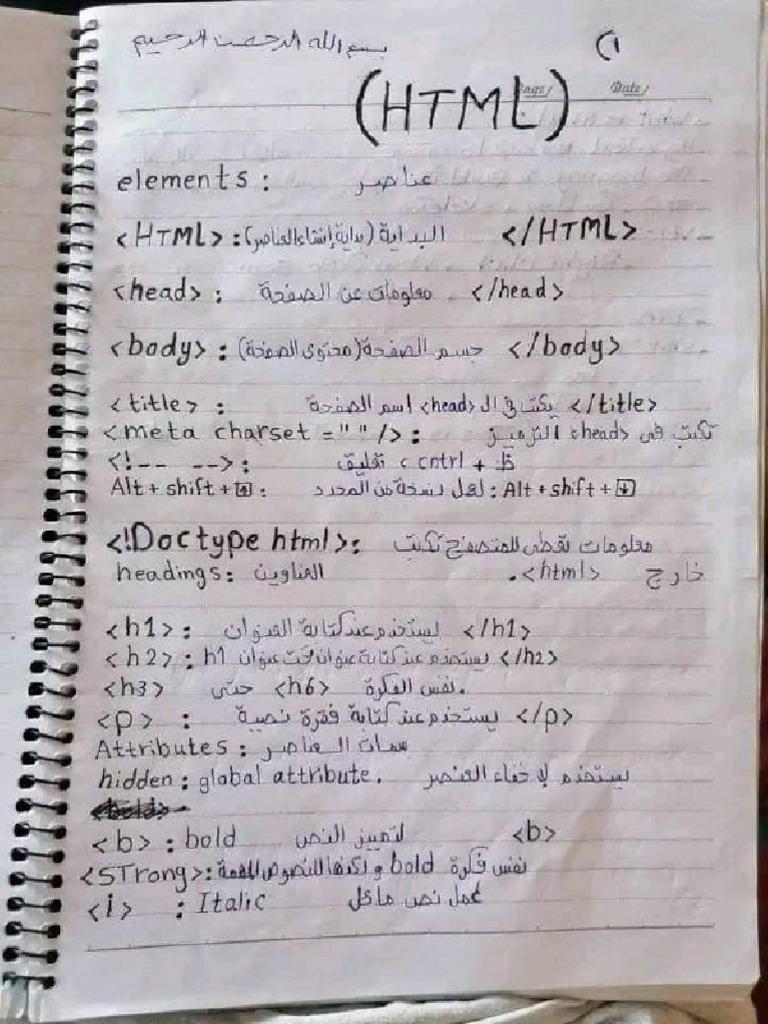 بسم الله الرحمن الرحيم
(1
Page/ Date/
(HTML)
elements : عناصر
<HTML> : البداية (بداية إنشاء العناصر) </HTML>
<head> : معلومات عن الصفحة </head>
<body> : جسم الصفحة (محتوى الصفحة) </body>
<title> : يكتب في ال <head> اسم الصفحة </title>
<meta charset = " " /> : تكتب في <head> الترميز
<!-- --> : تعليق < cntrl + ظ
Alt + shift + ↑ : لعمل نسخة من المحدد : Alt + shift + ↓
<!Doctype html> : معلومات تعطى للمتصفح تكتب
headings : العناوين خارج <html>.
<h1> : يستخدم عند كتابة العنوان </h1>
<h2> : يستخدم عند كتابة عنوان تحت عنوان h1 </h2>
<h3> حتى <h6> نفس الفكرة.
<p> : يستخدم عند كتابة فقرة نصية </p>
Attributes : سمات العناصر
hidden : global attribute. يستخدم لإخفاء العنصر
<b> : bold لتمييز النص <b>
<sTrong> : نفس فكرة bold ولكنها للنصوص المهمة
<i> : Italic عمل نص مائل